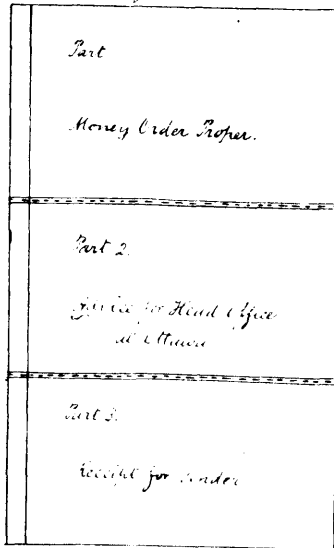 Part
Money Order Proper.
Part 2.
Advice for Head Office
at Ottawa
Part 3.
Receipt for sender